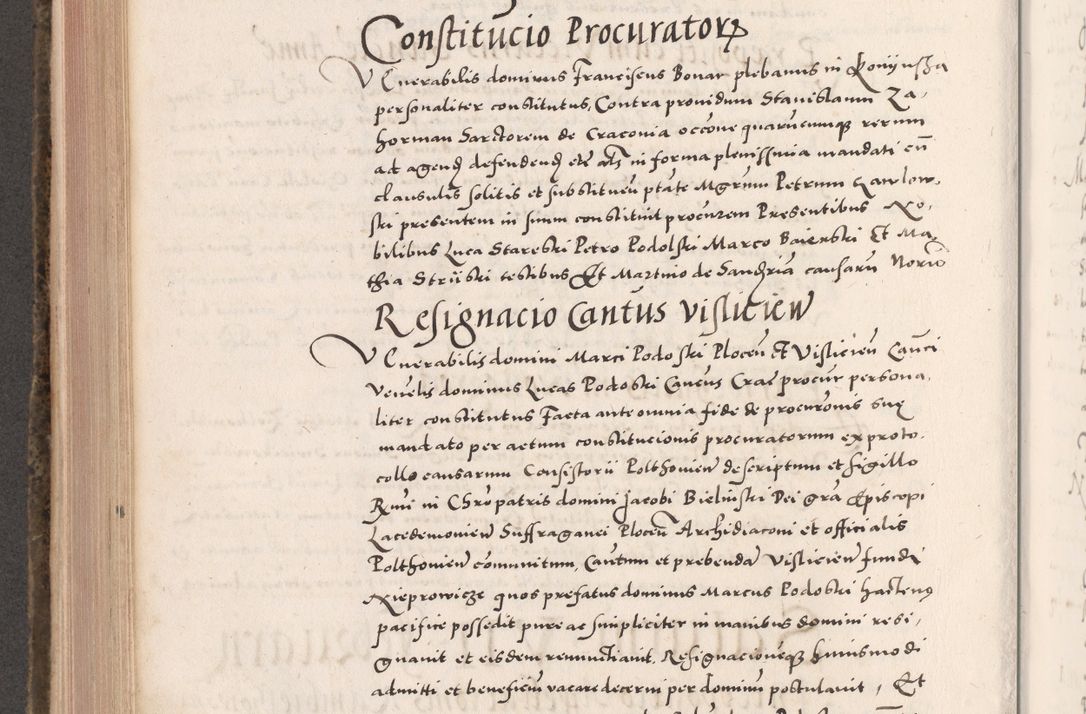 Constitucio Procurator
Venerabilis dominus Franciscus Bonar plebanus in Konijusza
personaliter constitutus, Contra providum Stanislaum Za,
horman Sarctorem de Craconia occone quarumcumque rerum
ad agend defendend etc als in forma plenissima mandati cu
clausulis solitis et substituen ptate Mgrum Petrum
ski presentem in suum constituit procurem Presentibus No,
bilibus Luca Stareski Petro Podolski Marco Baienski Et Ma,
thia Striiski testibus Et Martino de causaru Norio
Resignacio Cantus Visliciew
Venerabilis domini Marci Podoski Plocen Et Vislicien Canci
Venelis dominus Lucas Podoski Cancus Crac procur persona,
liter constitutus Facta ante omnia fide de procuronis sue
mandato per actum constitucionis procuratorum ex proto,
collo causarum Consistorii Polthoview descriptum et sigillo
Rmi in Chro patris domini Jacobi Bielinski Dei gra Episcopi
Lacedemoniew Suffraganei Plocen Archidiaconi et officialis
Polthoview comunitum, Cantum et prebenda Visliciew fundi
Nieprowicze quos prefatus dominus Marcus Podoski hactenus
pacifice possedit pure ac simpliciter in manibus domini resi,
gnavit et eisdem renunctiavit, Resignacionemque huiusmodi
admitti et beneficium vacare decerni per dominum postulavit, Et